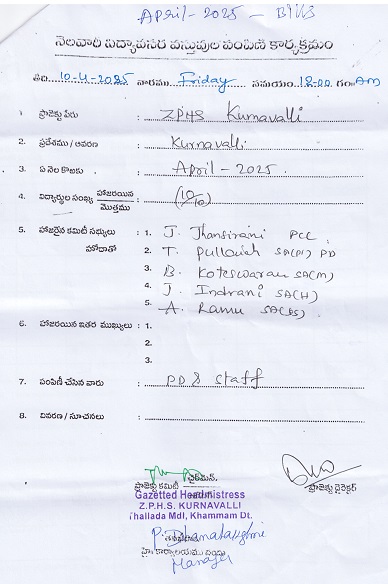 April-2025 - Bills
నెలవారీ విద్యావసర వస్తువుల పంపిణీ కార్యక్రమం
తేది 10-4-2025 వారము Friday సమయం 12-00 గం॥ AM
1. ప్రాజెక్టు పేరు : ZPHS Kurnavalli
2. ప్రదేశము / ఆవరణ : Kurnavalli
3. ఏ నెల కొఱకు : April - 2025.
4. విద్యార్థుల సంఖ్య హాజరయిన / మొత్తము : (10/10)
5. హాజరైన కమిటీ సభ్యులు : 1. J. Jhansirani PCC
హోదాతో 2. T. Pullaiah SA(PS) PD
3. B. Koteswararao SA(M)
4. J. Indrani SA(H)
5. A. Ramu SA(BS)
6. హాజరయిన ఇతర ముఖ్యులు : 1.
2.
3.
7. పంపిణీ చేసిన వారు : PD & staff
8. వివరణ / సూచనలు :
చైర్‌మన్,
ప్రాజెక్టు కమిటీ ప్రాజెక్టు డైరెక్టర్
Gazetted Headmistress
Z.P.H.S. KURNAVALLI
Thallada Mdl, Khammam Dt.
P. Dhanalakshmi
హై, కార్యాలయము నుండి
Manager